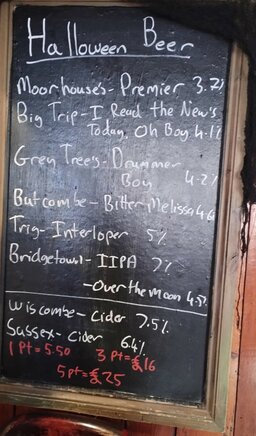 Halloween Beer
Moorhouses - Premier 3.7%
Big Trip - I Read the New's
Today, Oh Boy 4.1%
Grey Trees - Drummer
Boy 4.2%
Butcombe - Bitter Melissa 4.6
Trig - Interloper 5%
Bridgetown - IIPA 7%
- Over the moon 4.5%
Wiscombe - Cider 7.5%
Sussex - Cider 6.4%
1 Pt = 5.50 3 Pt = £16
5 pt = £25